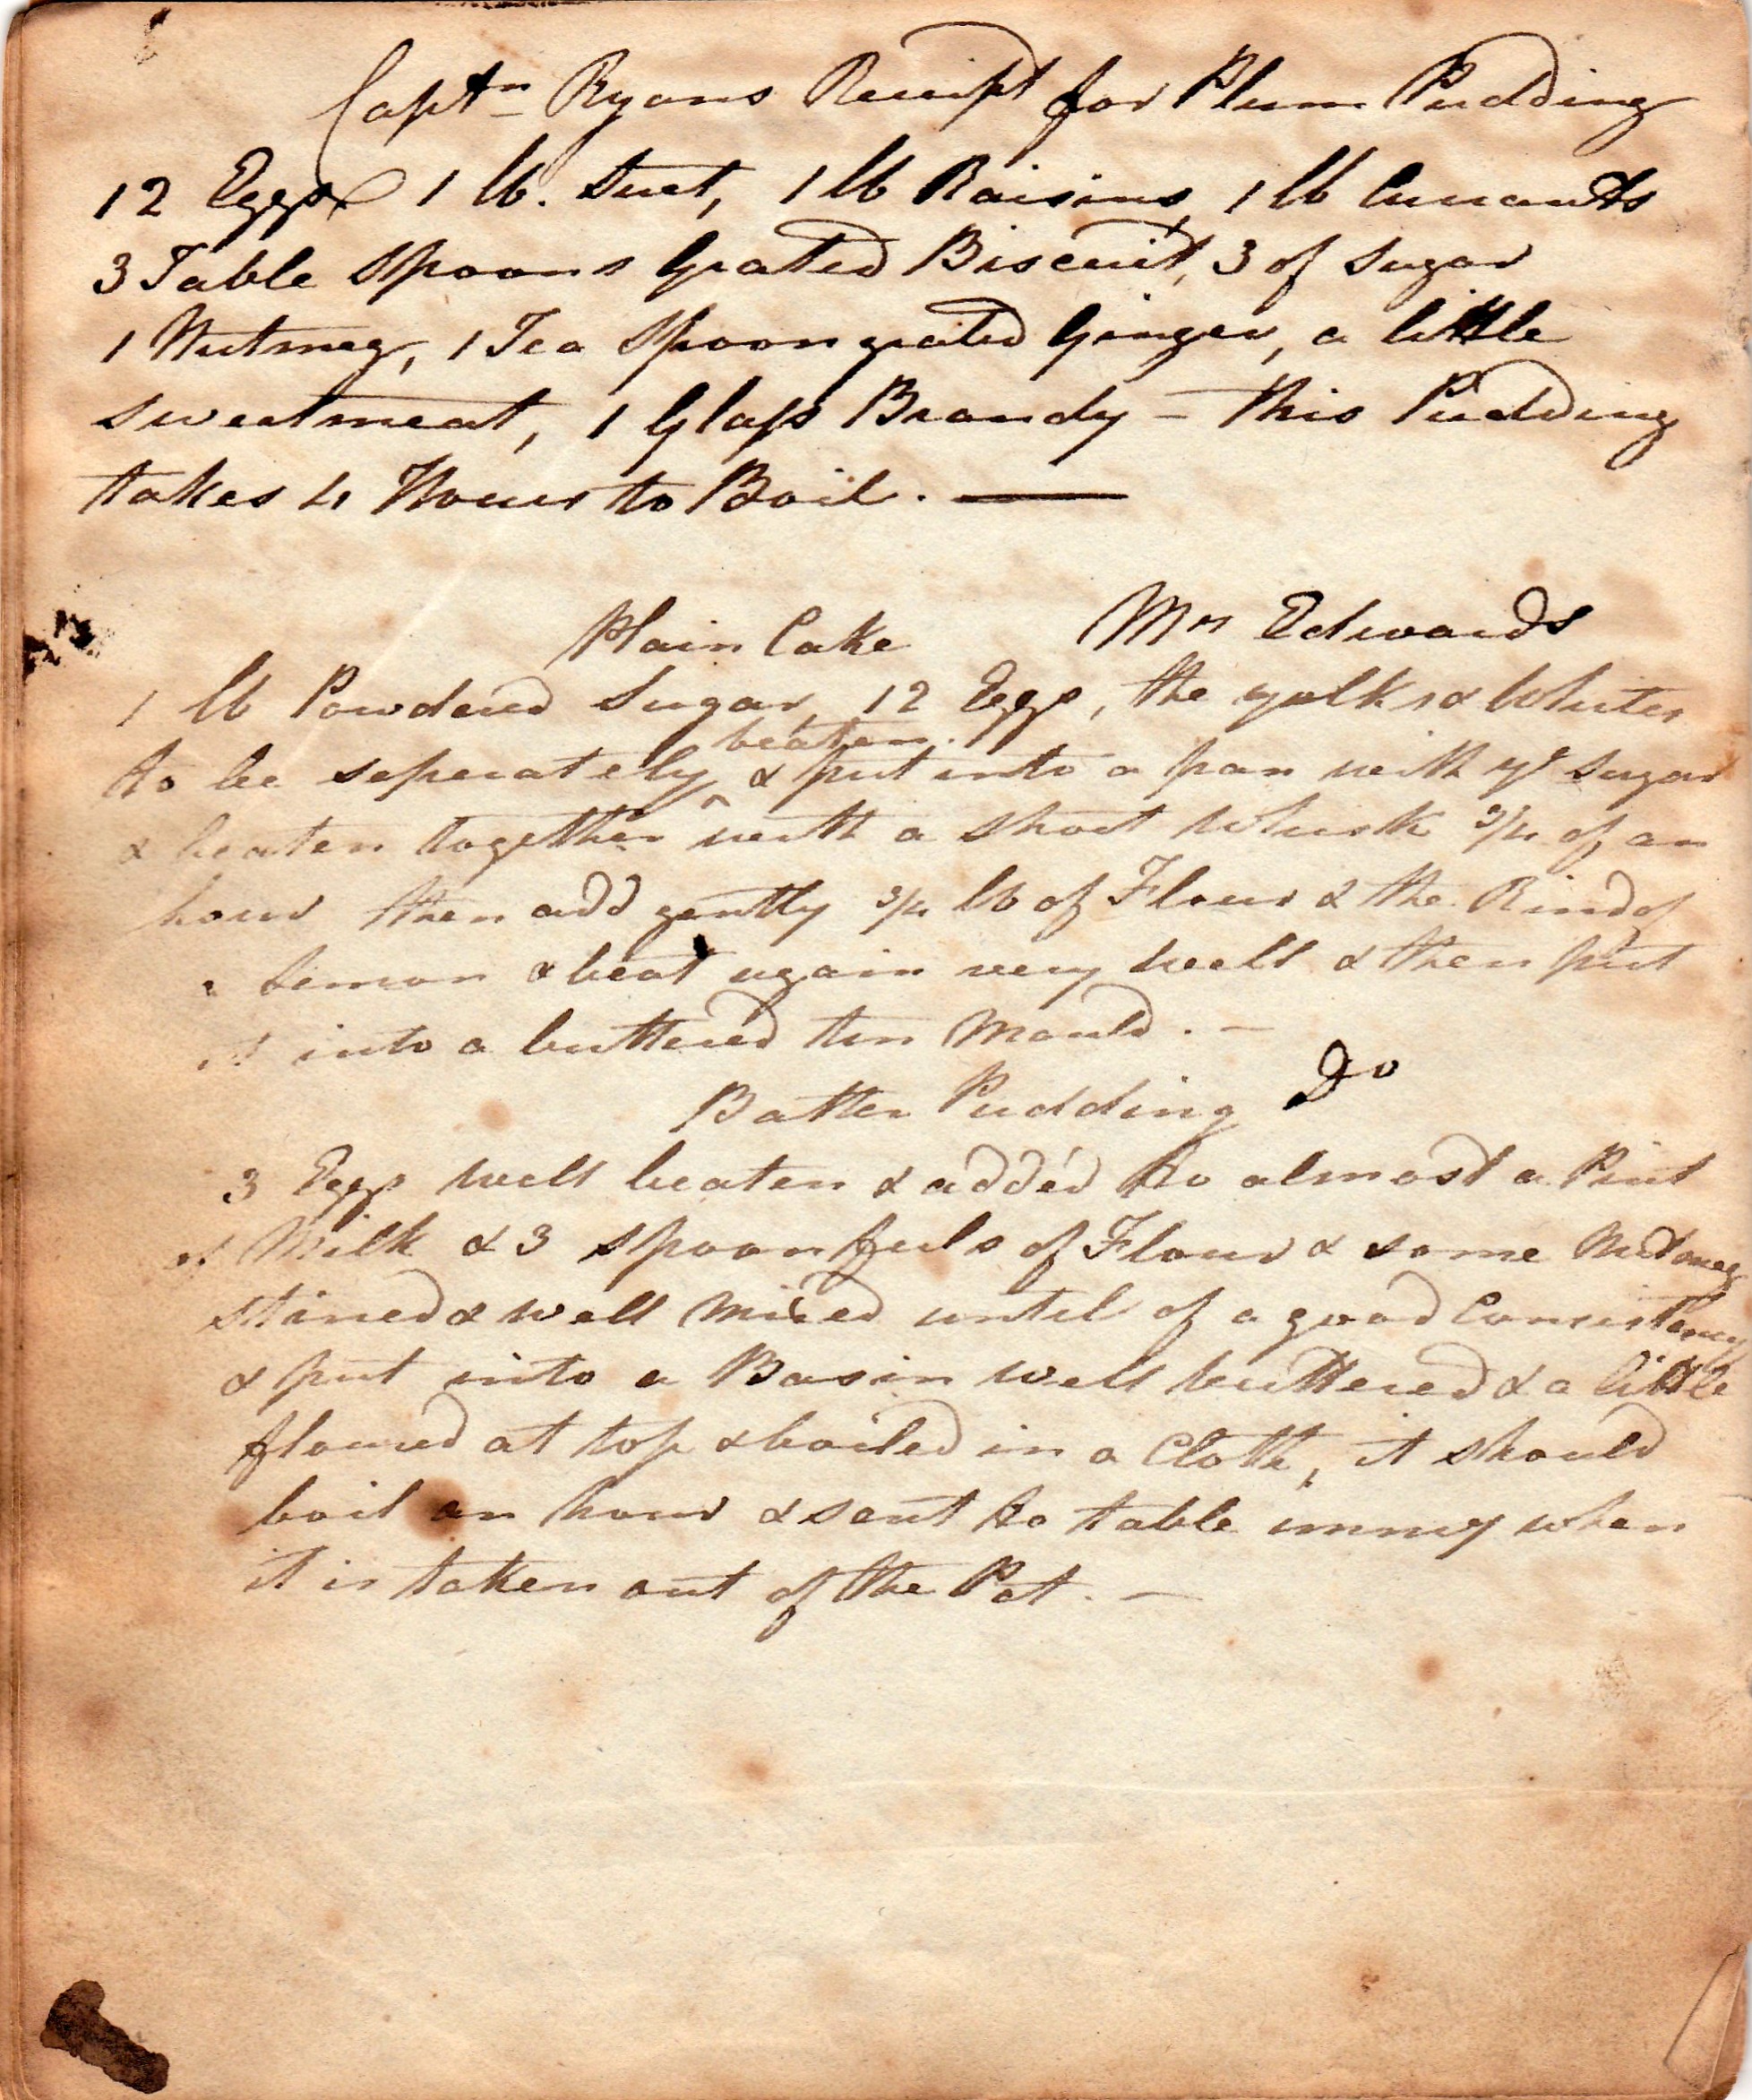 Captn Ryans Receipt for Plum Pudding
12 Eggs 1 lb. Suet, 1 lb Raisins, 1 lb Currants
3 Table Spoons Grated Biscuit, 3 of Sugar
1 Nutmeg, 1 Tea Spoon grated Ginger, a little
sweetmeat, 1 Glass Brandy - This Pudding
takes 4 Hours to Boil. —
Plain Cake Mrs Edwards
1 lb Powdered Sugar, 12 Eggs, the yolks & Whites
beaten
to be seperately & put into a pan with ye sugar
& beaten together with a short Whisk 3/4 of an
hour then add gently 3/4 lb of Flour & the Rind of
a Lemon & beat again very well & then put
it into a buttered tin Mould. -
Batter Pudding Do
3 Eggs well beaten & added to almost a Pint
of Milk & 3 spoonfuls of Flour & some Nutmeg
stired & well Mixed until of a good Consistency
& put into a Basin well buttered & a little
floured at top & boiled in a Cloth, it should
boil an hour & sent to table immy when
it is taken out of the Pot. -